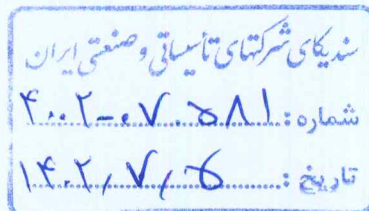 سندیکای شرکتهای تأسیساتی و صنعتی ایران
شماره: ۴۰۲-۰۷.۵۸۱
تاریخ: ۱۴۰۲,۷,۵